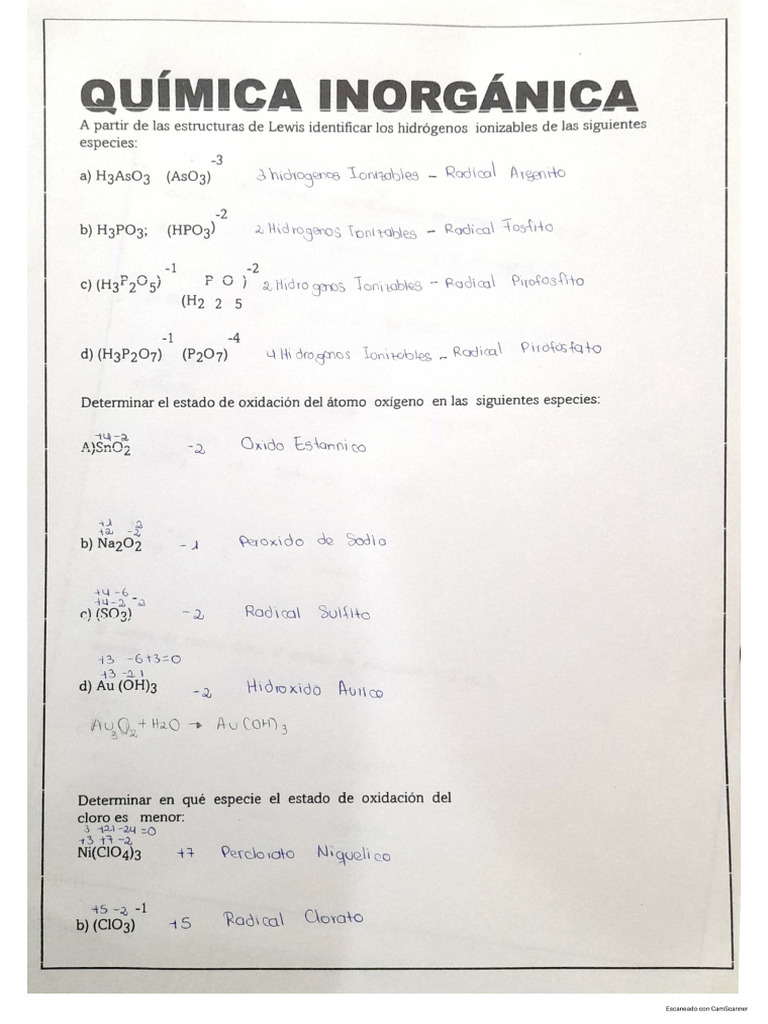 QUÍMICA INORGÁNICA
A partir de las estructuras de Lewis identificar los hidrógenos ionizables de las siguientes
especies:
a) H3AsO3 (AsO3)-3 3 hidrogenos Ionizables - Radical Arsenito
b) H3PO3; (HPO3)-2 2 Hidrogenos Ionizables - Radical Fosfito
c) (H3P2O5)-1 (H2 P2 O5)-2 2 Hidrogenos Ionizables - Radical Pirofosfito
d) (H3P2O7)-1 (P2O7)-4 4 Hidrogenos Ionizables - Radical Pirofosfato
Determinar el estado de oxidación del átomo oxígeno en las siguientes especies:
+4 -2
A)SnO2 -2 Oxido Estannico
+1 2
+2 -2
b) Na2O2 -1 Peroxido de Sodio
+4 -6
+4 -2 -2
c) (SO3) -2 Radical Sulfito
+3 -6+3=0
+3 -2 1
d) Au (OH)3 -2 Hidroxido Aurico
Au3O2 + H2O → Au(OH)3
Determinar en qué especie el estado de oxidación del
cloro es menor:
3 +21 -24 =0
+3 +7 -2
Ni(ClO4)3 +7 Perclorato Niquelico
+5 -2 -1
b) (ClO3) +5 Radical Clorato
Escaneado con CamScanner